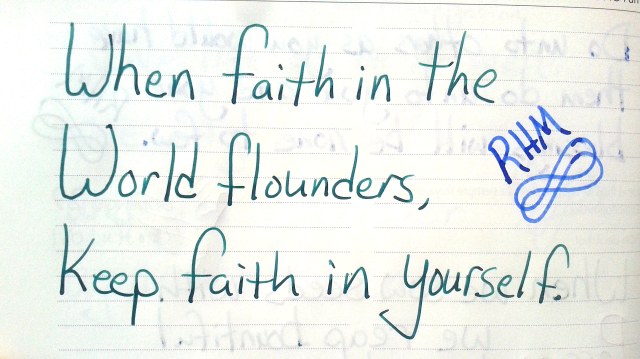 When faith in the
World flounders,
Keep faith in yourself.
RHM